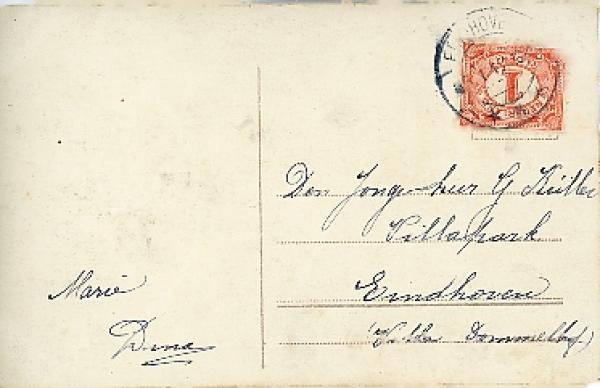 HOVE
1
Den Jonge heer G Küller
Villapark
Eindhoven
(Villa Dommelhof)
Marie
Dina